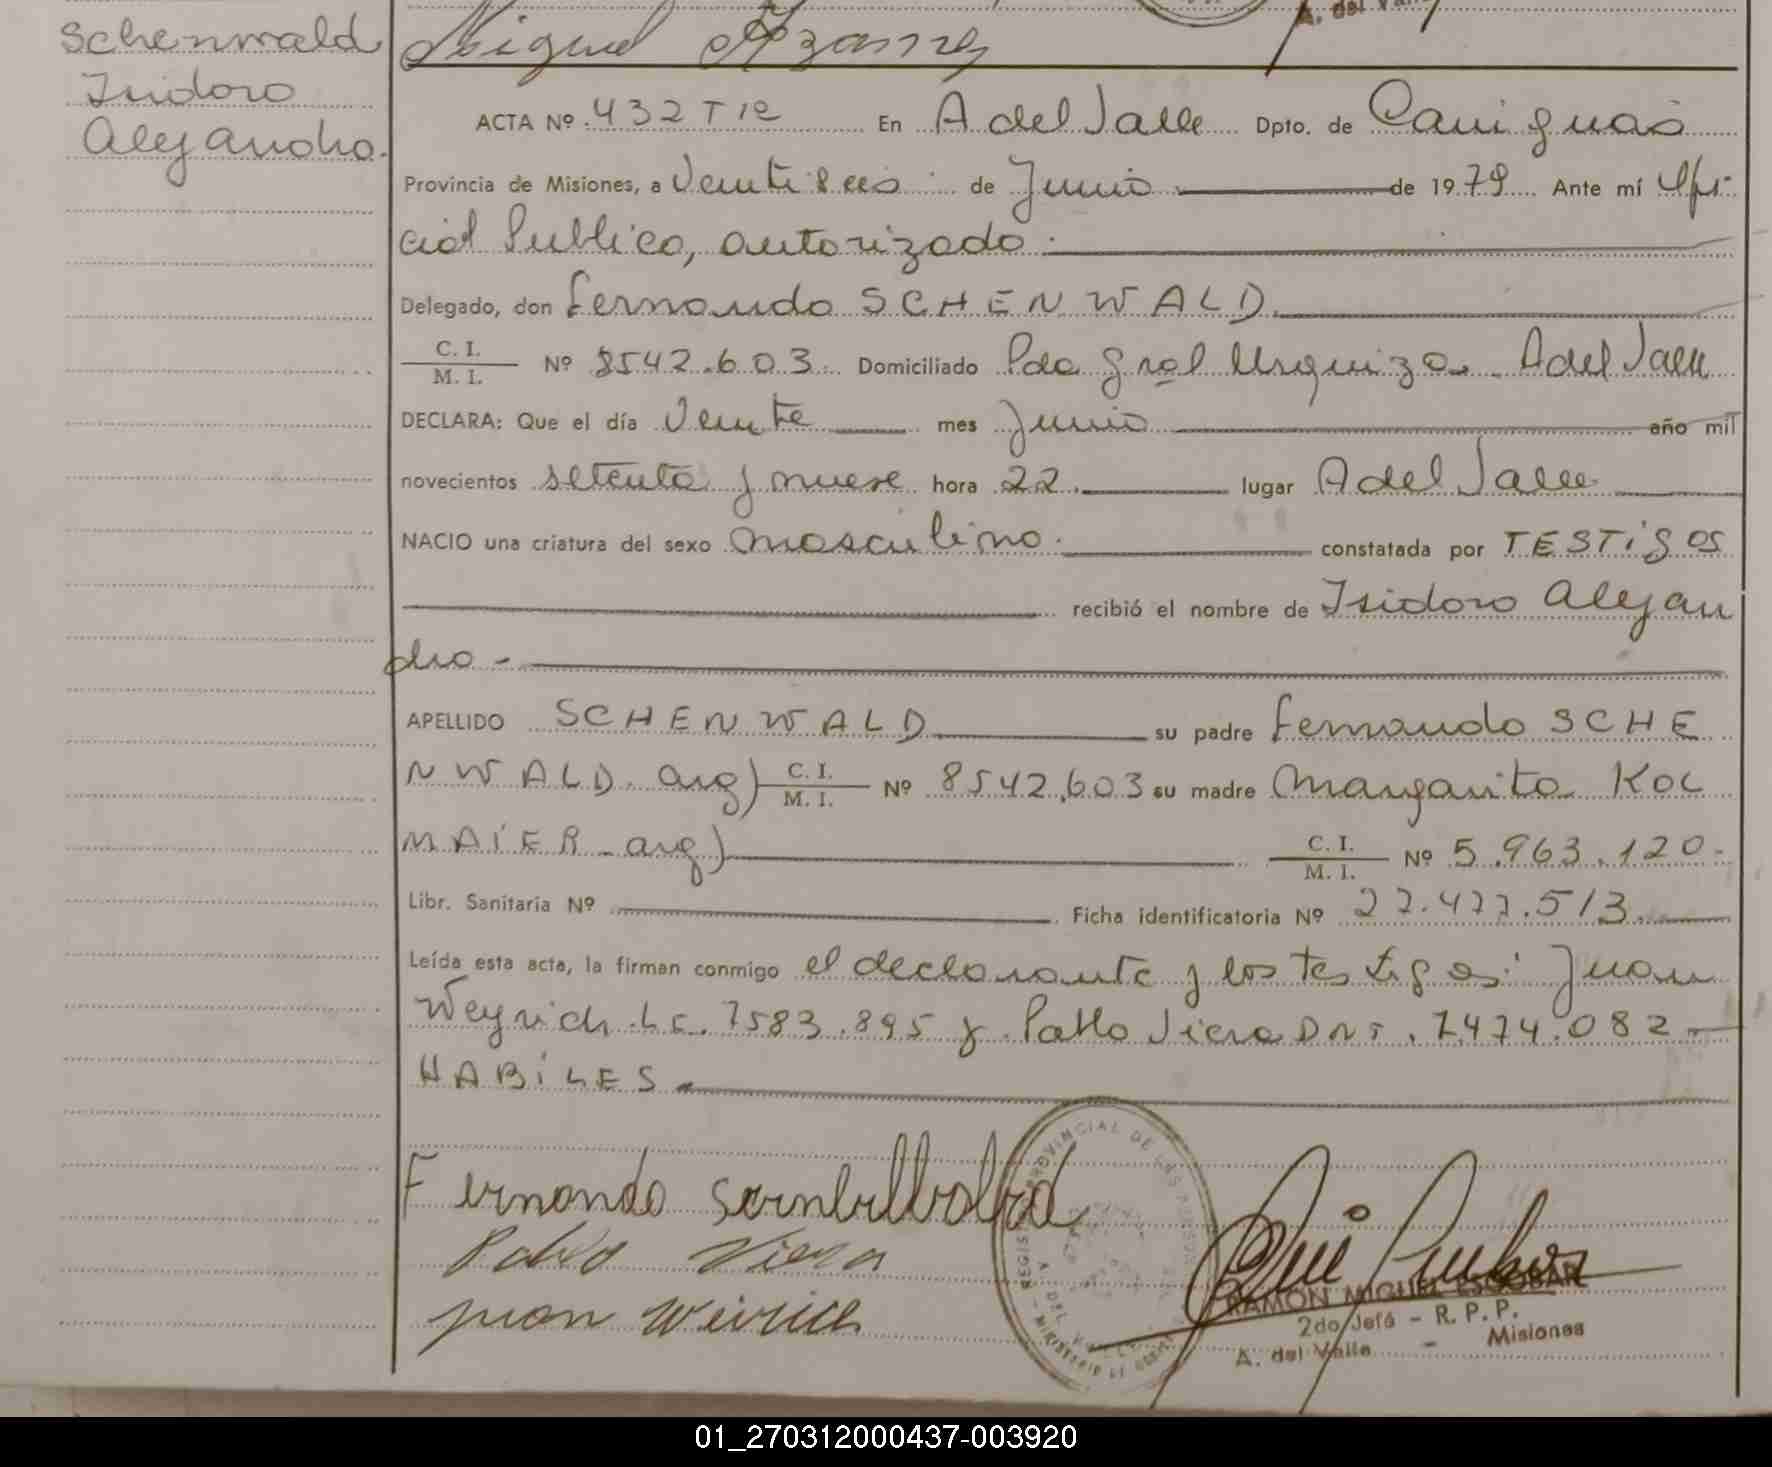 Schenwald
Isidoro
Alejandro.
Miguel
A. del Valle
ACTA Nº 432 T IIº En A del Valle Dpto. de Cainguas
Provincia de Misiones, a Veintiseis de Junio de 1979 Ante mí Ofi-
cial Publico, autorizado.
Delegado, don Fernando SCHENWALD
C. I.
M. I. Nº 8542.603. Domiciliado Pdo Gral Urquiza. A del Valle
DECLARA: Que el día Veinte mes Junio año mil
novecientos setenta y nueve hora 22. lugar A del Valle
NACIO una criatura del sexo masculino. constatada por TESTigos
recibió el nombre de Isidoro Alejan
dro -
APELLIDO SCHENWALD su padre Fernando SCHE
NWALD. arg) C. I.
M. I. Nº 8542.603 su madre Margarita KOC
MAiER - arg) C. I.
M. I. Nº 5.963.120-
Libr. Sanitaria Nº Ficha identificatoria Nº 27.477.513.
Leída esta acta, la firman conmigo el declarante y los testigos: Juan
Weyrich. LE. 7583.895 y Pablo Viera DNI. 7.474.082-
HABiLES
Fernando
Pablo Viera
juan Weirich
REGISTRO PROVINCIAL DE LAS PERSONAS
A. DEL VALLE
RAMON MIGUEL ESCOBAR
2do Jefe - R. P. P.
A. del Valle - Misiones
01_270312000437-003920